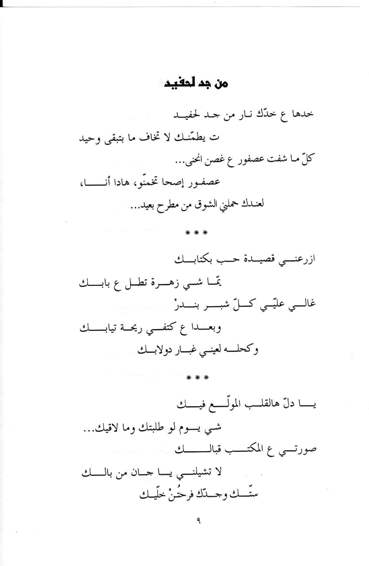 من جد لحفيد
خدها ع خدّك نار من جد لحفيد
ت يطمّنك لا تخاف ما بتبقى وحيد
كلّ ما شفت عصفور ع غصن انحنى...
عصفور إصحا تخمنّو، هادا أنا،
لعندك حملني الشوق من مطرح بعيد...
* * *
ازرعني قصيدة حب بكتابك
يمّا شي زهرة تطل ع بابك
غالي عليّي كلّ شبر بندرْ
وبعدا ع كتفي ريحة تيابك
وكحله لعيني غبار دولابك
* * *
يا دلّ هالقلب المولّع فيك
شي يوم لو طلبتك وما لاقيك...
صورتي ع المكتب قبالك
لا تشيلني يا جان من بالك
ستّك وجدّك فرحُنْ خلّيك
٩